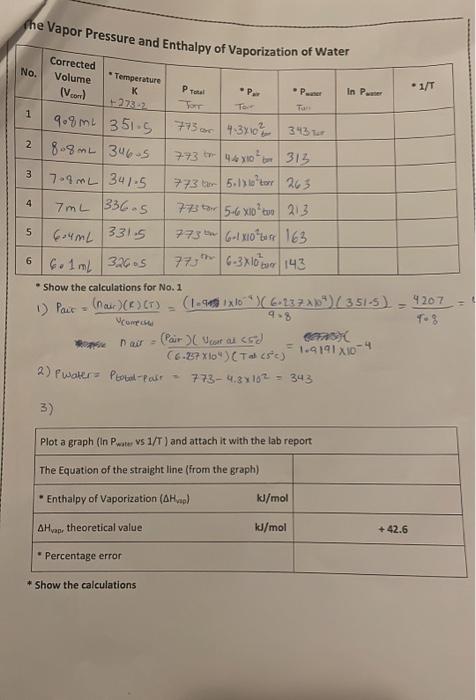 The Vapor Pressure and Enthalpy of Vaporization of Water
No. Corrected Volume (Vcorr) * Temperature K +273.2 P Total Torr * Pair Torr * Pwater Torr ln Pwater * 1/T
1 9.8mL 351.5 773 torr 4.3x10² torr 343 torr
2 8.8mL 346.5 773 torr 4.6 x10² torr 313
3 7.9mL 341.5 773 torr 5.1x10² torr 263
4 7mL 336.5 773 torr 5.6 x10² torr 213
5 6.4mL 331.5 773 torr 6.1 x10² torr 163
6 6.1mL 326.5 773 torr 6.3x10² torr 143
* Show the calculations for No. 1
1) Pair = (nair)(R)(T) / Vcorrected = (1.9191x10⁻⁴)(6.237x10⁴)(351.5) / 9.8 = 4207 / 9.8 =
nair = (Pair)(Vcorr at <5°c) / (6.237x10⁴)(T at <5°c) = 1.9191x10⁻⁴
2) Pwater = Ptotal-Pair = 773-4.3x10² = 343
3)
Plot a graph (ln Pwater vs 1/T ) and attach it with the lab report
The Equation of the straight line (from the graph)
* Enthalpy of Vaporization (ΔHvap) kJ/mol
ΔHvap, theoretical value kJ/mol + 42.6
* Percentage error
* Show the calculations